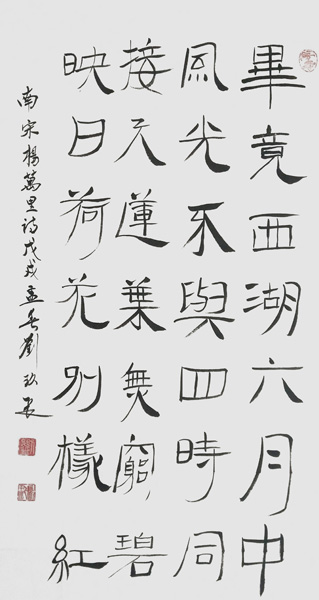 畢竟西湖六月中
風光不與四時同
接天蓮葉無窮碧
映日荷花別樣紅
南宋楊萬里詩戊戌孟春劉